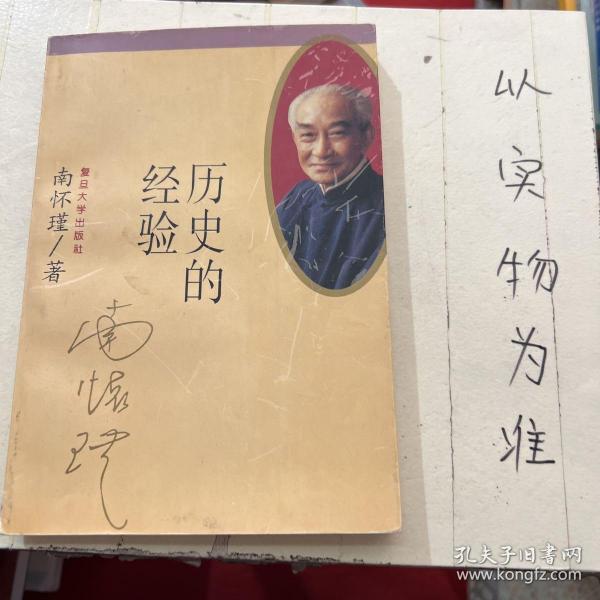 历史的
经验
复旦大学出版社
南怀瑾/著
南怀瑾
以实物为准
孔夫子旧书网
www.kongfz.com